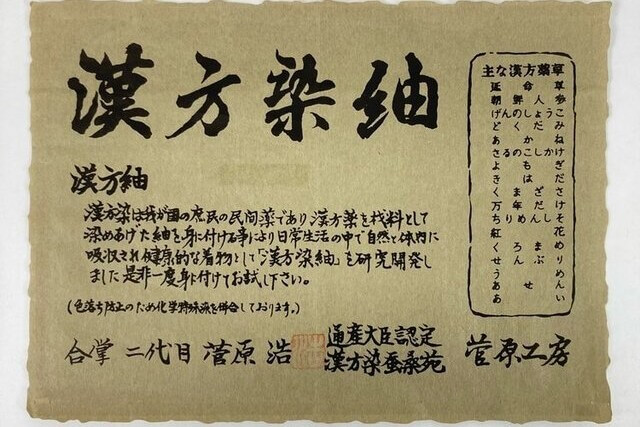 漢方染紬
漢方紬
漢方染は我が国の庶民の民間薬であり漢方薬を材料として
染めあげた紬を身に付ける事により日常生活の中で自然と体内に
吸収され健康的な着物として「漢方染紬」を研究開発し
ました是非一度身に付けてお試し下さい。
(色落ち防止のため化学特殊染を併合しております。)
主な漢方薬草
延命草
朝鮮人参
げんのしょうこ
どくだみ
あかね
さるのこしかけ
よもぎ
きはだ
くまざさ
万年だけ
ちりめんしそ
紅花
くろまめ
せんぶり
うめ
あせん
あい
合掌 二代目 菅原 浩
通産大臣認定
漢方染蚕桑苑
菅原工房